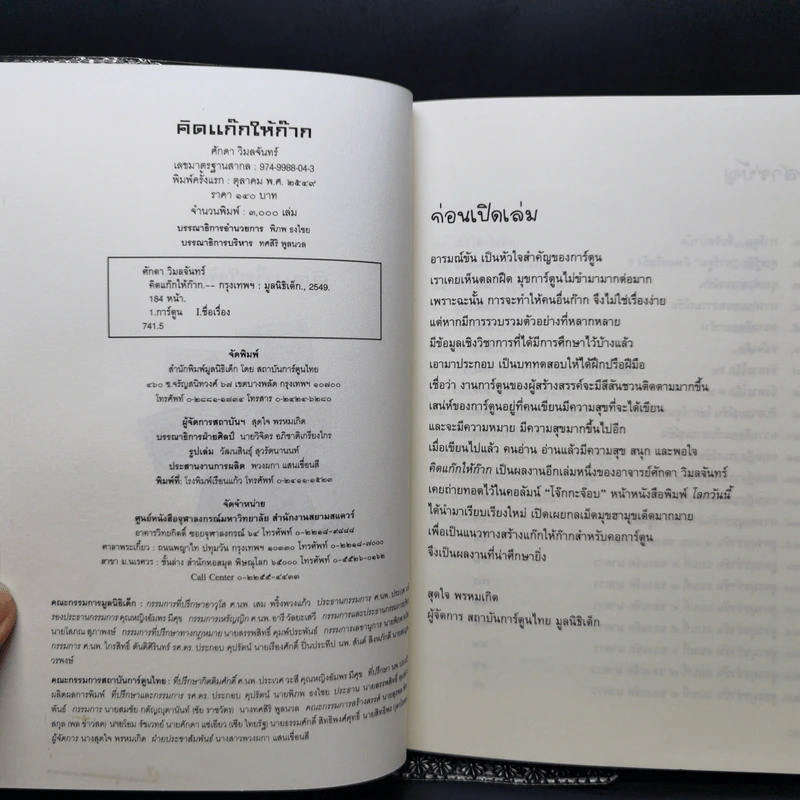 คิดแก๊กให้ก๊าก
ศักดา วิมลจันทร์
เลขมาตรฐานสากล : 974-9988-04-3
พิมพ์ครั้งแรก : ตุลาคม พ.ศ. ๒๕๔๙
ราคา ๑๔๐ บาท
จำนวนพิมพ์ : ๓,๐๐๐ เล่ม
บรรณาธิการอำนวยการ พิภพ ธงไชย
บรรณาธิการบริหาร ทศสิริ พูลนวล
ศักดา วิมลจันทร์
คิดแก๊กให้ก๊าก.-- กรุงเทพฯ : มูลนิธิเด็ก., 2549.
184 หน้า.
1.การ์ตูน I.ชื่อเรื่อง
741.5
จัดพิมพ์
สำนักพิมพ์มูลนิธิเด็ก โดย สถาบันการ์ตูนไทย
๔๖๐ ซ.จรัญสนิทวงศ์ ๖๗ เขตบางพลัด กรุงเทพฯ ๑๐๗๐๐
โทรศัพท์ ๐-๒๘๘๑-๑๗๓๔ โทรสาร ๐-๒๔๒๔-๖๒๘๐
ผู้จัดการสถาบันฯ สุดใจ พรหมเกิด
บรรณาธิการฝ่ายศิลป์ นายวิจิตร อภิชาติเกรียงไกร
รูปเล่ม วัฒนสินธุ์ สุวรัตนานนท์
ประสานงานการผลิต พวงผกา แสนเขื่อนสี
พิมพ์ที่: โรงพิมพ์เรือนแก้ว โทรศัพท์ ๐-๒๔๑๑-๑๕๒๓
จัดจำหน่าย
ศูนย์หนังสือจุฬาลงกรณ์มหาวิทยาลัย สำนักงานสยามสแควร์
อาคารวิทยกิตติ์ ซอยจุฬาลงกรณ์ ๖๔ โทรศัพท์ ๐-๒๒๑๘-๙๘๘๘
ศาลาพระเกี้ยว : ถนนพญาไท ปทุมวัน กรุงเทพฯ ๑๐๓๓๐ โทรศัพท์ ๐-๒๒๑๘-๗๐๐๐
สาขา ม.นเรศวร : ชั้นล่าง สำนักหอสมุด พิษณุโลก ๖๕๐๐๐ โทรศัพท์ ๐-๕๕๒๖-๐๑๖๒
Call Center ๐-๒๒๕๕-๔๔๓๓
คณะกรรมการมูลนิธิเด็ก : กรรมการที่ปรึกษาอาวุโส ศ.นพ. เสม พริ้งพวงแก้ว ประธานกรรมการ ศ.นพ. ประเวศ
รองประธานกรรมการ คุณหญิงอัมพร มีศุข กรรมการเหรัญญิก ศ.นพ. อารี วัลยะเสวี กรรมการและประธานกรรมการบริหาร
นายโสภณ สุภาพงษ์ กรรมการที่ปรึกษาทางกฎหมาย นายสรรพสิทธิ์ คุมพ์ประพันธ์ กรรมการเลขานุการ
กรรมการ ศ.นพ. ไกรสิทธิ์ ตันติศิรินทร์ รศ.ดร. ประกอบ คุปรัตน์ นายเรืองศักดิ์ ปิ่นประทีป นพ. สันต์
วรพงษ์
คณะกรรมการสถาบันการ์ตูนไทย : ที่ปรึกษากิตติมศักดิ์ ศ.นพ. ประเวศ วะสี คุณหญิงอัมพร มีศุข ที่ปรึกษา
ผลิตผลการพิมพ์ ที่ปรึกษาและกรรมการ รศ.ดร. ประกอบ คุปรัตน์ นายพิภพ ธงไชย ประธาน นายสรรพสิทธิ์
พันธ์ กรรมการ นายสมชัย กตัญญุตานันท์ (ชัย ราชวัตร) นางทศสิริ พูลนวล คณะกรรมการสร้างสรรค์
สกุล (พล ข่าวสด) นายโอม รัชเวทย์ นายศักดา แซ่เอียว (เซีย ไทยรัฐ) นายธรรมศักดิ์ สิทธิพงศ์สุทธิ์
ผู้จัดการ นางสุดใจ พรหมเกิด ฝ่ายประชาสัมพันธ์ นางสาวพวงผกา แสนเขื่อนสี
ก่อนเปิดเล่ม
อารมณ์ขัน เป็นหัวใจสำคัญของการ์ตูน
เราเคยเห็นตลกฝืด มุขการ์ตูนไม่ขำมามากต่อมาก
เพราะฉะนั้น การจะทำให้คนอื่นก๊าก จึงไม่ใช่เรื่องง่าย
แต่หากมีการรวบรวมตัวอย่างที่หลากหลาย
มีข้อมูลเชิงวิชาการที่ได้มีการศึกษาไว้บ้างแล้ว
เอามาประกอบ เป็นบททดสอบให้ได้ฝึกปรือฝีมือ
เชื่อว่า งานการ์ตูนของผู้สร้างสรรค์จะมีสีสันชวนติดตามมากขึ้น
เสน่ห์ของการ์ตูนอยู่ที่คนเขียนมีความสุขที่จะได้เขียน
และจะมีความหมาย มีความสุขมากขึ้นไปอีก
เมื่อเขียนไปแล้ว คนอ่าน อ่านแล้วมีความสุข สนุก และพอใจ
คิดแก๊กให้ก๊าก เป็นผลงานอีกเล่มหนึ่งของอาจารย์ศักดา วิมลจันทร์
เคยถ่ายทอดไว้ในคอลัมน์ "โจ๊กกะจ๊อบ" หน้าหนังสือพิมพ์ โลกวันนี้
ได้นำมาเรียบเรียงใหม่ เปิดเผยกลเม็ดมุขฮามุขเด็ดมากมาย
เพื่อเป็นแนวทางสร้างแก๊กให้ก๊ากสำหรับคอการ์ตูน
จึงเป็นผลงานที่น่าศึกษายิ่ง
สุดใจ พรหมเกิด
ผู้จัดการ สถาบันการ์ตูนไทย มูลนิธิเด็ก